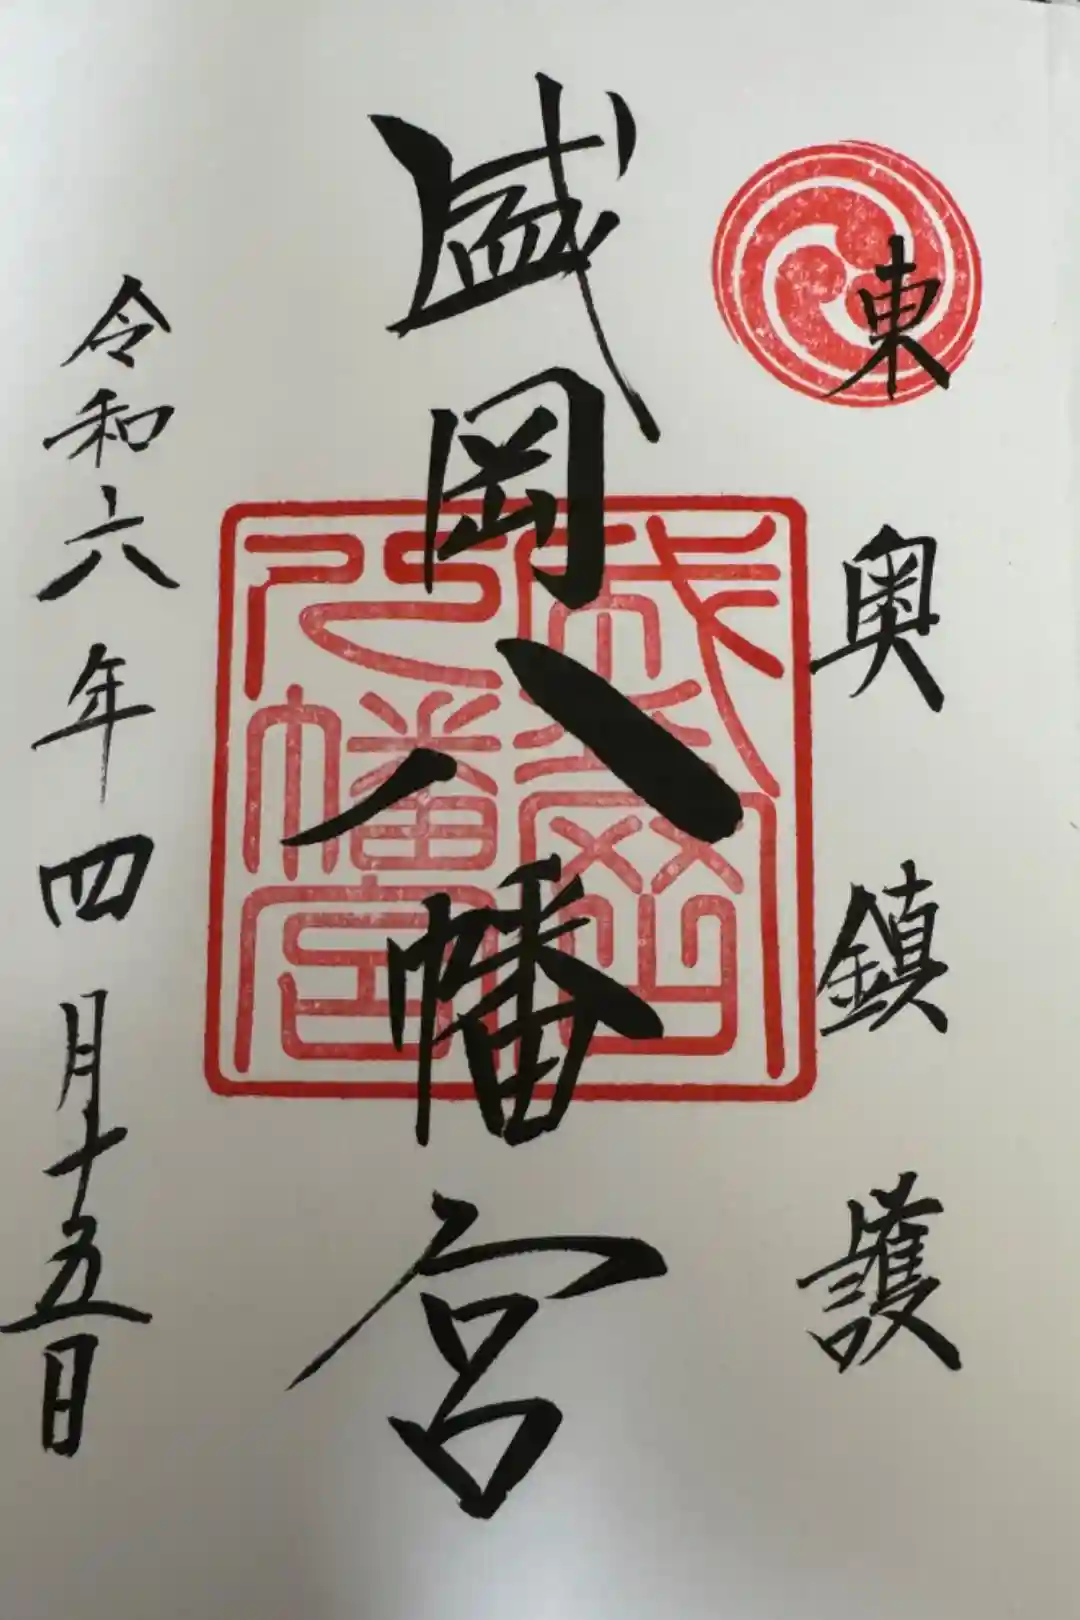 東奥鎮護
盛岡八幡宮
盛岡
八幡宮
令和六年四月十五日